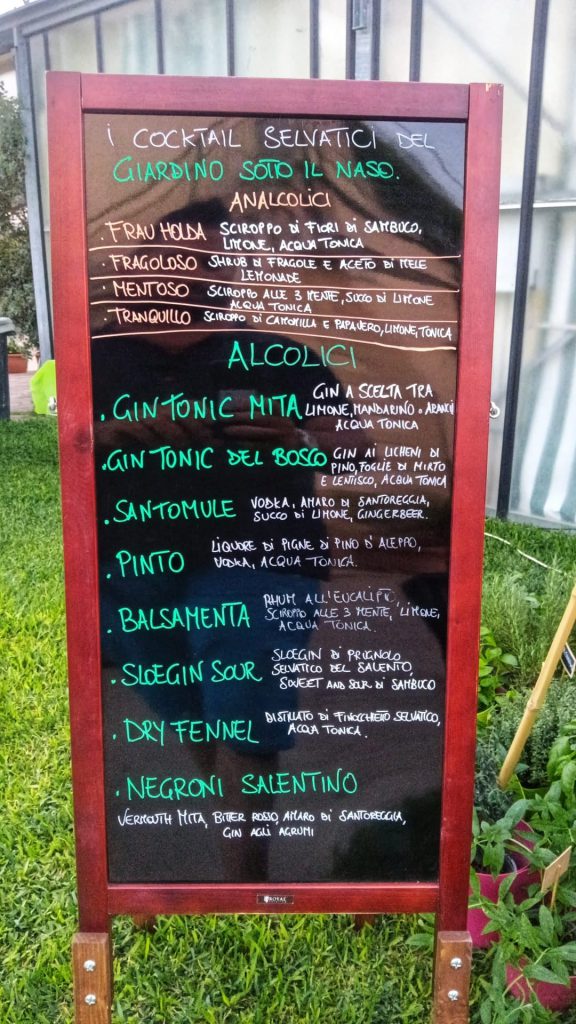 I COCKTAIL SELVATICI DEL
GIARDINO SOTTO IL NASO.
ANALCOLICI
. FRAU HOLDA SCIROPPO DI FIORI DI SAMBUCO,
LIMONE, ACQUA TONICA
. FRAGOLOSO SHRUB DI FRAGOLE E ACETO DI MELE
LEMONADE
. MENTOSO SCIROPPO ALLE 3 MENTE, SUCCO DI LIMONE
ACQUA TONICA
. TRANQUILLO SCIROPPO DI CAMOMILLA E PAPAVERO, LIMONE, TONICA
ALCOLICI
. GIN TONIC MITA GIN A SCELTA TRA
LIMONE, MANDARINO O ARANCI
ACQUA TONICA
. GIN TONIC DEL BOSCO GIN AI LICHENI DI
PINO, FOGLIE DI MIRTO
E LENTISCO, ACQUA TONICA
. SANTOMULE VODKA, AMARO DI SANTOREGGIA,
SUCCO DI LIMONE, GINGERBEER.
. PINTO LIQUORE DI PIGNE DI PINO D'ALEPPO,
VODKA, ACQUA TONICA.
. BALSAMENTA RHUM ALL'EUCALIPTO,
SCIROPPO ALLE 3 MENTE, LIMONE,
ACQUA TONICA.
. SLOEGIN SOUR SLOEGIN DI PRUGNOLO
SELVATICO DEL SALENTO,
SWEET AND SOUR DI SAMBUCO
. DRY FENNEL DISTILLATO DI FINOCCHIETTO SELVATICO,
ACQUA TONICA.
. NEGRONI SALENTINO
VERMOUTH MITA, BITER ROSSO, AMARO DI SANTOREGGIA,
GIN AGLI AGRUMI